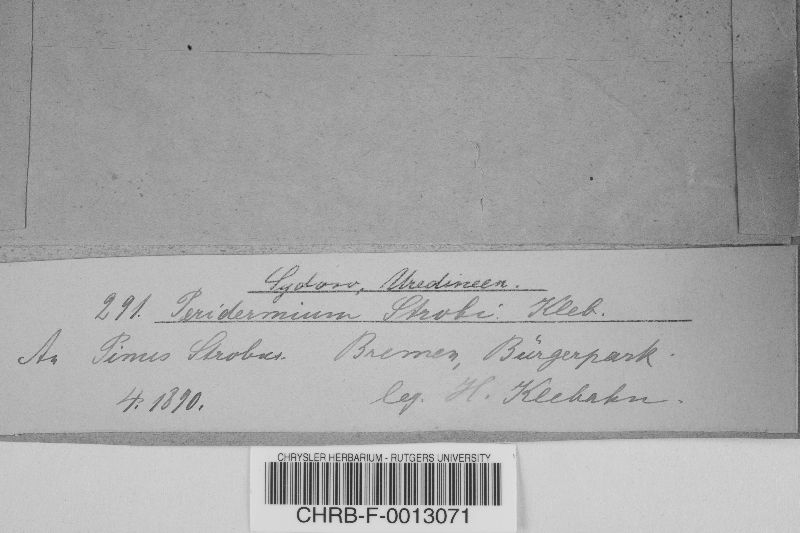 Sydow, Uredineen.
291. Peridermium Strobi Kleb.
An Pinus Strobus. Bremen, Bürgerpark.
4. 1890. leg. H. Klebahn.
CHRYSLER HERBARIUM - RUTGERS UNIVERSITY
CHRB-F-0013071